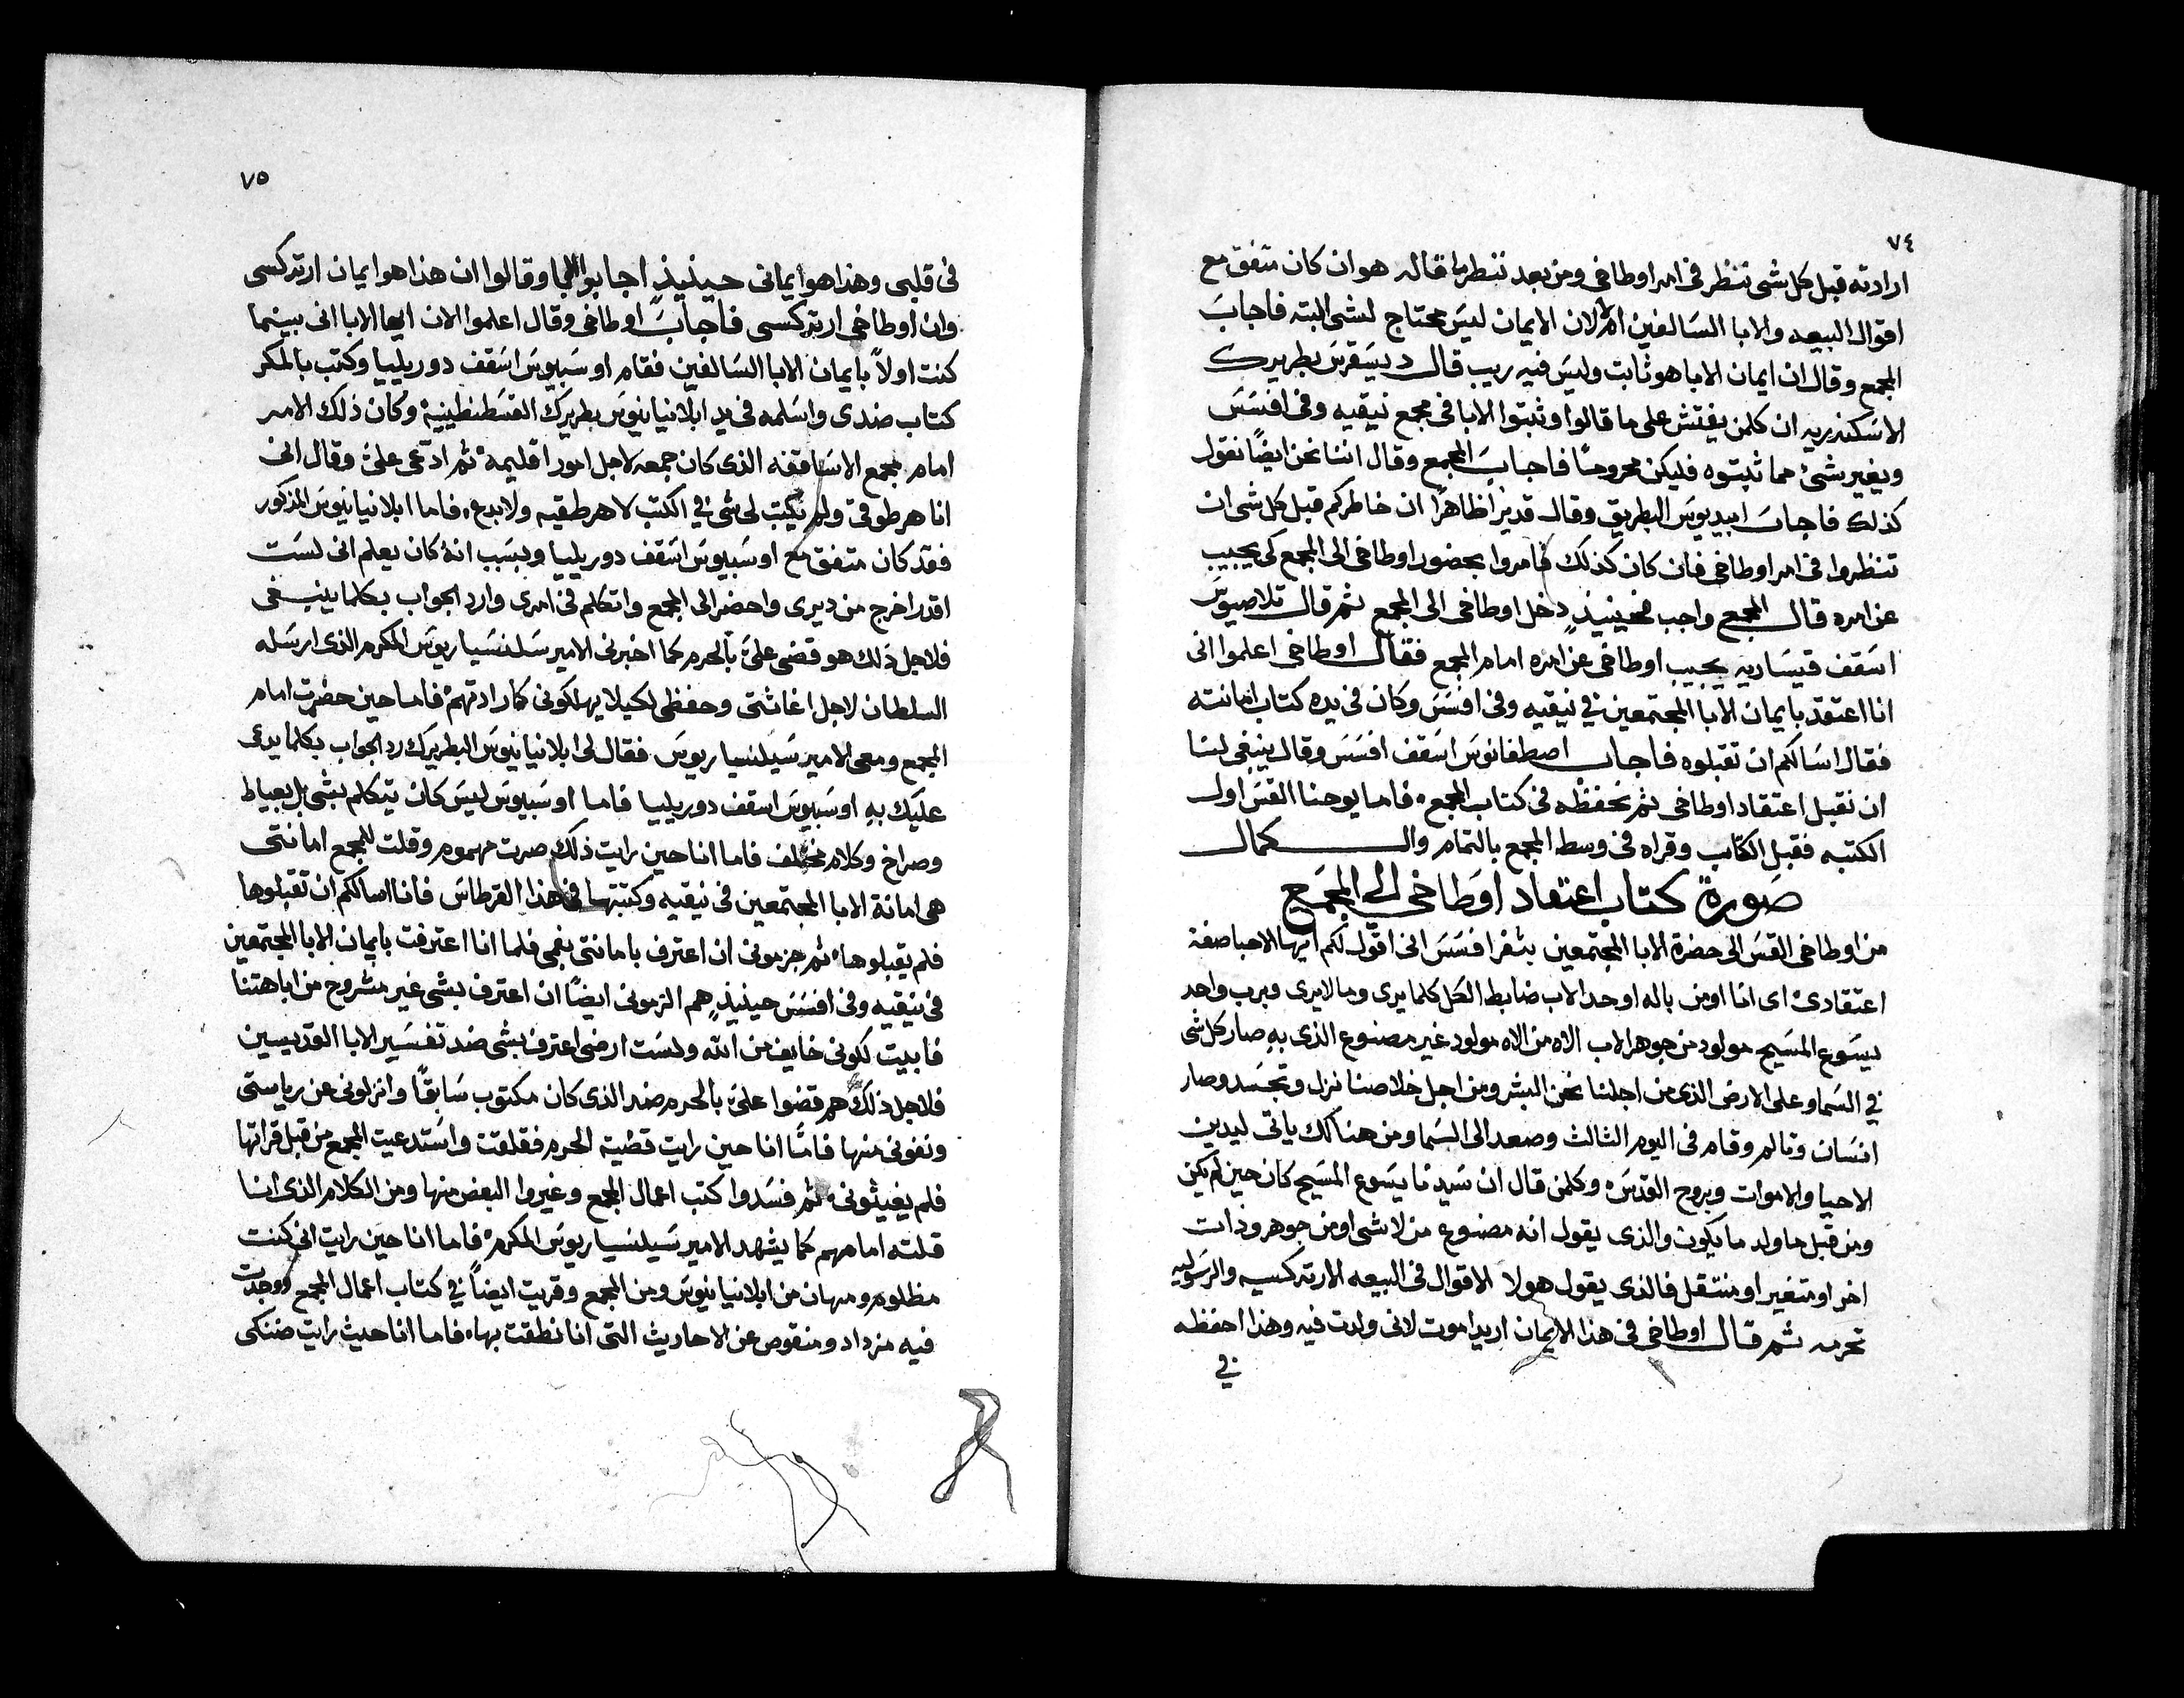 ٧٤
ارادته قبل كل شى ننظر فى امر اوطاخى ومن بعد ننظر ما قاله هو ان كان متفق مع
اقوال البيعه والابا السالفين ام لا لان الايمان ليس محتاج لشى البته فاجاب
المجمع وقال ان ايمان الابا هو ثابت وليس فيه ريب قال ديسقرس بطريرك
الاسكندريه ان كلمن يفتش على ما قالوا وثبتوا الابا فى مجمع نيقيه وفى افسس
ويغير شئ مما ثبتوه فليكن محرومًا فاجاب المجمع وقال اننا نحن ايضًا نقول
كذلك فاجاب ابيديوس البطريق وقال قد نرا ظاهرًا ان خاطركم قبل كل شى ان
تنظروا فى امر اوطاخى فان كان كذلك فامروا بحضور اوطاخى الى المجمع كى يجيب
عن امره قال المجمع واجب فحينيذٍ دخل اوطاخى الى المجمع ثم قال تلاصيوس
اسقف قيساريه يجيب اوطاخى عن امره امام المجمع فقال اوطاخى اعلموا انى
انا اعتقد بايمان الابا المجتمعين في نيقيه وفى افسس وكان فى يده كتاب امانته
فقال اسالكم ان تقبلوه فاجاب اصطفانوس اسقف افسس وقال ينبغى لنا
ان نقبل اعتقاد اوطاخى ثم نحفظه فى كتاب المجمع، فاما يوحنا القس اول
الكتبه فقبل الكتاب وقراه فى وسط المجمع بالتمام والكمال
صورة كتاب اعتقاد اوطاخى الى المجمع
من اوطاخى القس الى حضرة الابا المجتمعين بثغر افسس انى اقول لكم ايها الاحبا صفة
اعتقادى اى انا اومن باله اوحد الاب ضابط الكل كلما يرى وما لا يرى وبرب واحد
يسوع المسيح مولود من جوهر الاب الاه من الاه مولود غير مصنوع الذى به صار كل شى
في السما وعلى الارض الذى من اجلنا نحن البشر ومن اجل خلاصنا نزل وتجسد وصار
انسان وتالم وقام فى اليوم الثالث وصعد الى السما ومن هناك ياتى ليدين
الاحيا والاموات وبروح القدس، وكلمن قال ان سيدنا يسوع المسيح كان حين لم يكن
ومن قبل ما ولد ما يكون والذى يقول انه مصنوع من لا شى او من جوهر وذات
اخر او متغير او منتقل فالذى يقول هولا الاقوال فى البيعه الارتدكسيه والرسوليه
تحرمه ثم قال اوطاخى فى هذا الايمان اريد اموت لانى ولدت فيه وهذا احفظه
في
٧٥
فى قلبى وهذا هو ايمانى حينيذٍ اجابوا وقالوا ان هذا هو ايمان ارتدكسى
وان اوطاخى ارتدكسى فاجاب اوطاخى وقال اعلموا الان ايها الابا انى بينما
كنت اولاً بايمان الابا السالفين فقام اوسبيوس اسقف دوريليا وكتب بالمكر
كتاب ضدى واسلمه فى يد ابلانيانيوس بطريرك القسطنطينية وكان ذلك الامر
امام مجمع الاساقفه الذى كان جمعه لاجل امور اقليمه، ثم ادعى علىّ وقال انى
انا هرطوقى ولم تكتب لى شى في الكتب لا هرطقيه ولا بدع، فاما ابلانيانيوس المذكور
فقد كان متفق مع اوسبيوس اسقف دوريليا وبسبب انه كان يعلم انى لست
اقدر اخرج من ديرى واحضر الى المجمع واتكلم فى امرى وارد الجواب بكلما ينبغى
فلاجل ذلك هو قضى علىّ بالحرم كما اخبرنى الامير سلنسياريوس المكرم الذى ارسله
السلطان لاجل اغاثتى وحفظى لكيلا يهلكونى كارادتهم فاما حين حضرت امام
المجمع ومعى الامير سيلنسياريوس فقال لى ابلانيانيوس البطريرك رد الجواب بكلما يدعى
عليك به اوسبيوس اسقف دوريليا فاما اوسبيوس ليس كان يتكلم بشى بل بعياط
وصراخ وكلام مختلف فاما انا حين رايت ذلك صرت مهموم وقلت للمجمع امانتى
هى امانة الابا المجتمعين فى نيقيه وكتبتها فى هذا القرطاس فانا اسالكم ان تقبلوها
فلم يقبلوها، ثم جزمونى ان اعترف بامانتى بفمى فلما انا اعترفت بايمان الابا المجتمعين
فى نيقيه وفى افسس حينيذٍ هم الزمونى ايضًا ان اعترف بشى غير مشروح من اباهتنا
فابيت لكونى خايف من الله ولست ارضى اعترف بشى ضد تفسير الابا القديسين
فلاجل ذلك هم قضوا علىّ بالحرم ضد الذى كان مكتوب سابقًا وانزلونى عن رياستى
ونفونى منها فامّا انا حين رايت قضية الحرم فقلقت واستدعيت المجمع من قبل قراتها
فلم يغيثونى، ثم فسدوا كتب اعمال المجمع وغيروا البعض منها ومن الكلام الذى انا
قلته امامهم كما يشهد الامير سيلنسياريوس المكرم، فاما انا حين رايت انى كنت
مظلوم ومهان من ابلانيانيوس ومن المجمع وقريت ايضًا في كتاب اعمال المجمع ووجدت
فيه مزداد ومنقوص عن الاحاديث التى انا نطقت بها، فاما انا حيث رايت ضنكى